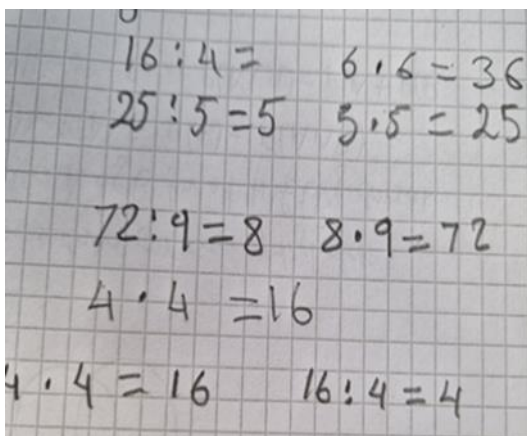 16:4= 6·6=36
25:5=5 5·5=25
72:9=8 8·9=72
4·4 =16
4·4=16 16:4=4